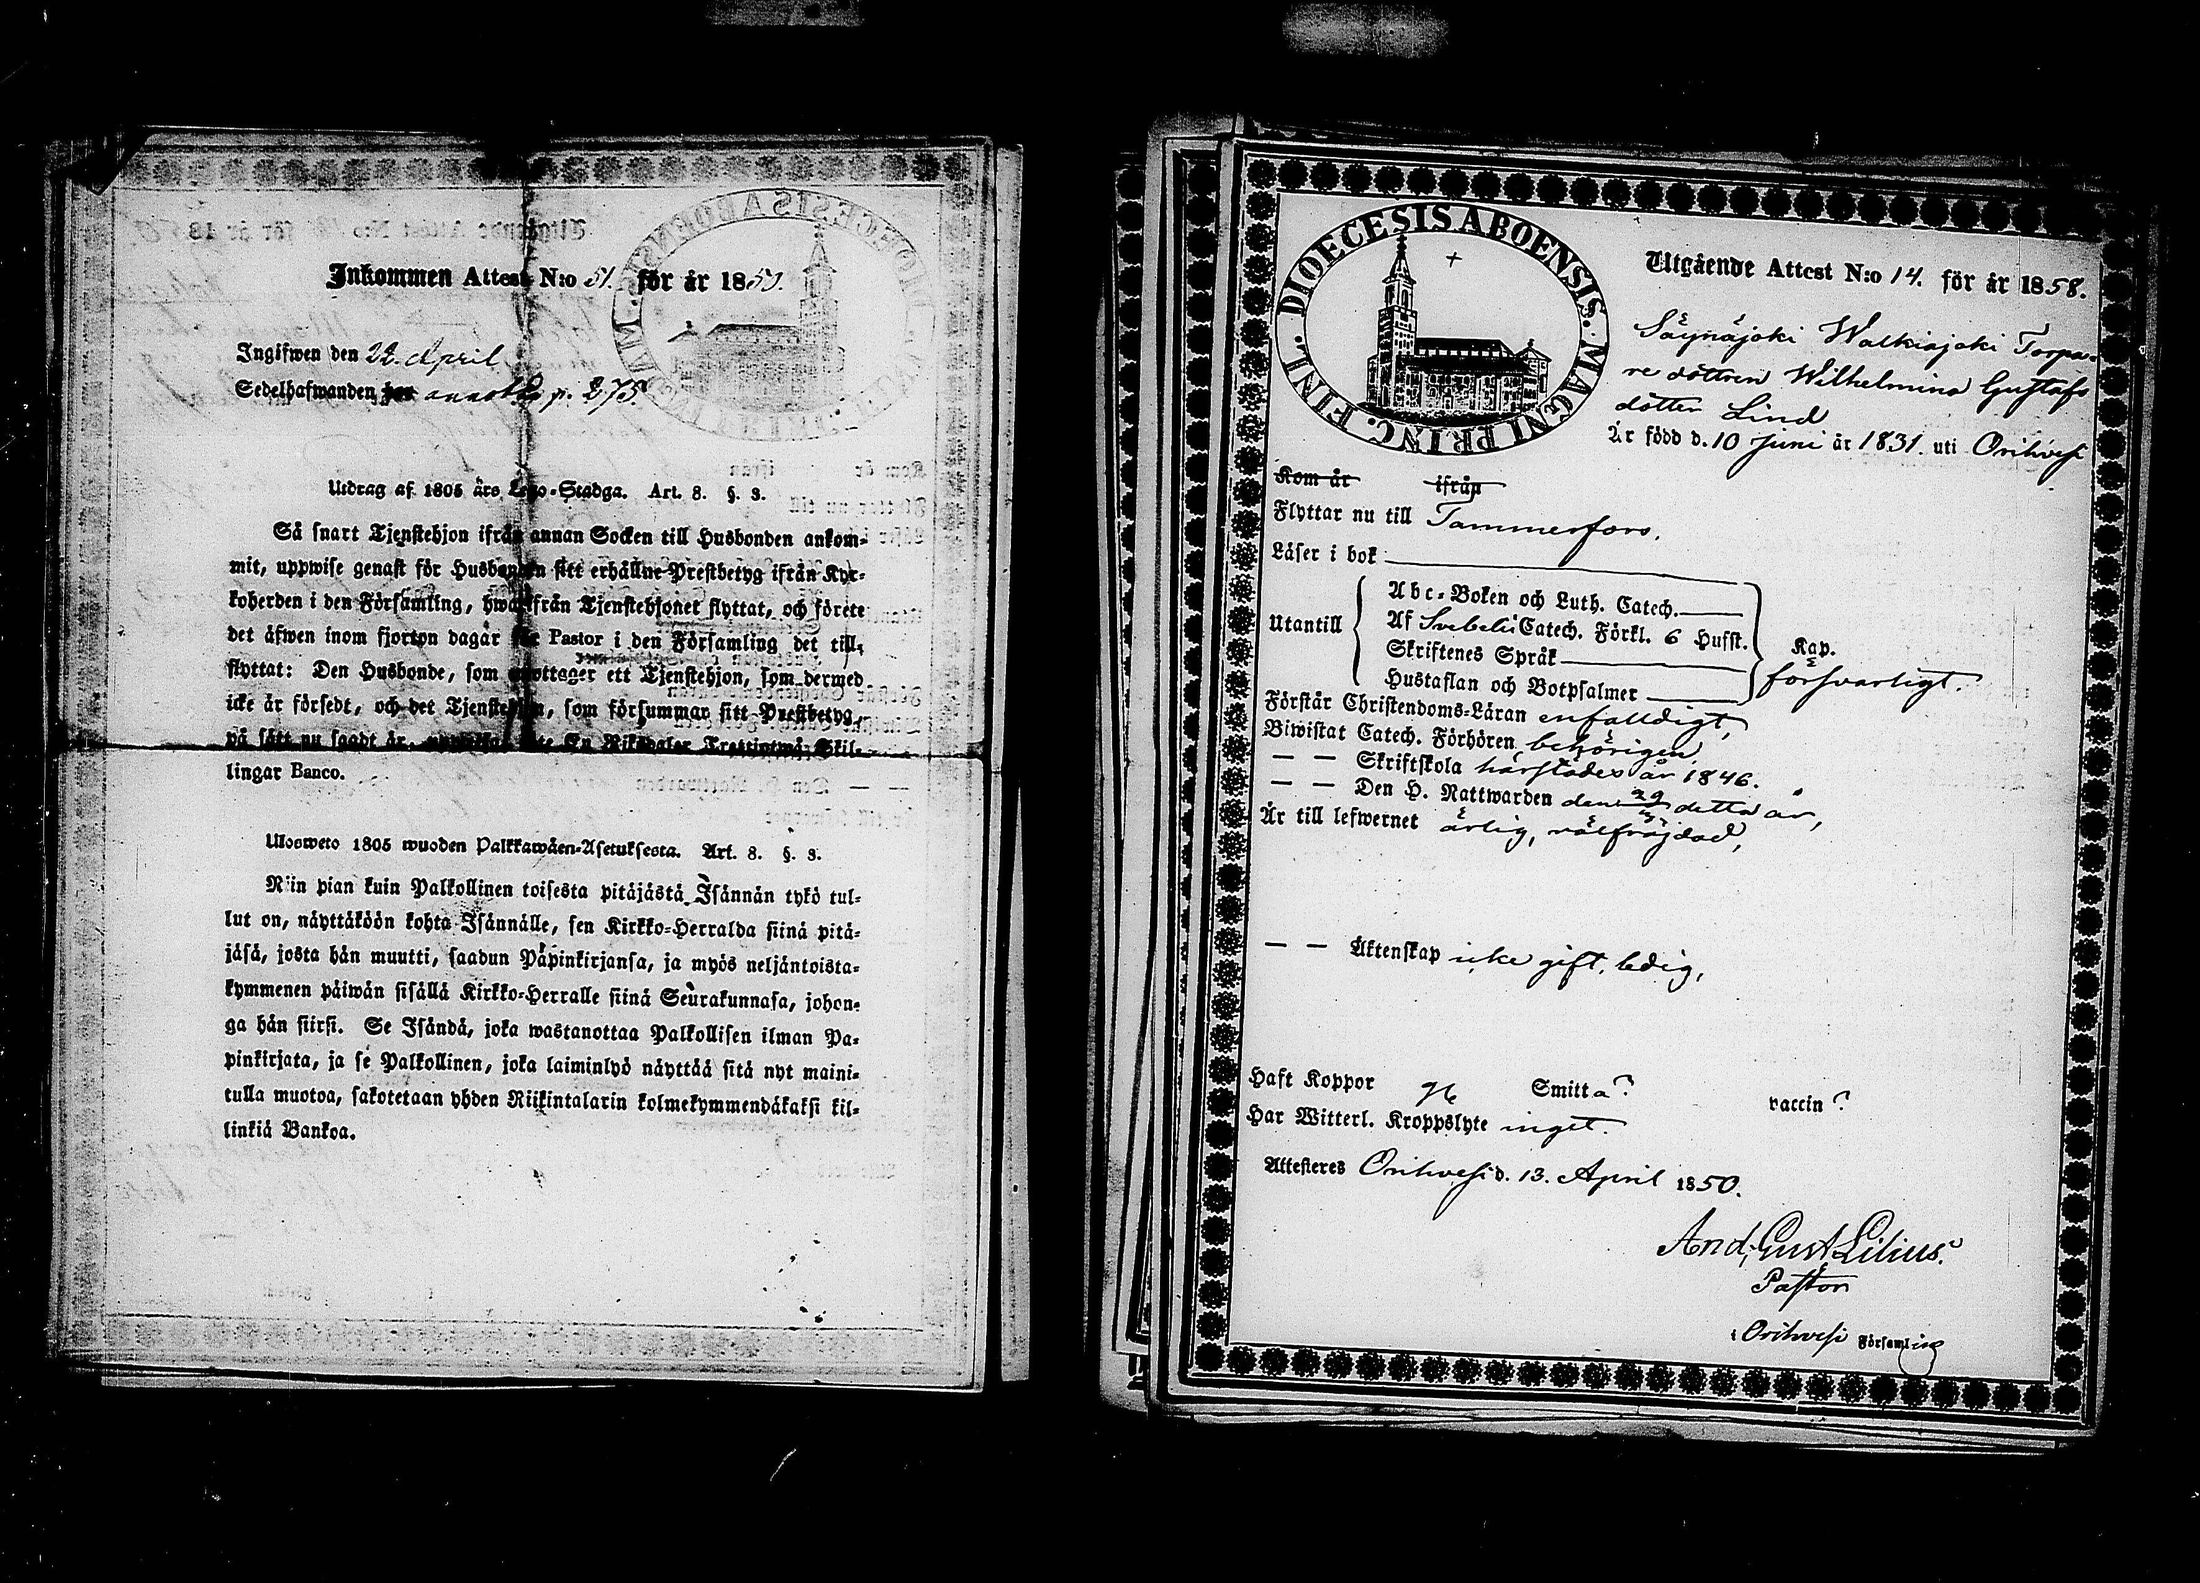 Inkommen Attest N:o 51. för år 1850.
Ingifwen den 22. April
Sedelhafwanden har annot p. 275.
Utdrag af 1805 års Lego-Stadga. Art. 8. §. 3.
Så snart Tjenstehjon ifrån annan Socken till Husbonden ankom-
mit, uppwise genast för Husbonden sitt erhållne Prestbetyg ifrån Kyr-
koherden i den Församling, hwarifrån Tjenstehjonet flyttat, och förete
det äfwen inom fjorton dagar för Pastor i den Församling det till-
flyttat: Den Husbonde, som emottager ett Tjenstehjon, som dermed
icke är försedt, och det Tjenstehjon, som försummar sitt Prestbetyg,
på sätt nu sagdt är, En Riksdaler Trettiotwå Skil-
lingar Banco.
Ulosweto 1805 wuoden Palkkawäen-Asetuksesta. Art. 8. §. 3.
Niin pian kuin Palkollinen toisesta pitäjästä Isännän tykö tul-
lut on, näyttäköön kohta Isännälle, sen Kirkko-Herralda siinä pitä-
jäsä, josta hän muutti, saadun Papinkirjansa, ja myös neljäntoista-
kymmenen päiwän sisällä Kirkko-Herralle siinä Seurakunnasa, johon-
ga hän siirsi. Se Isändä, joka wastanottaa Palkollisen ilman Pa-
pinkirjata, ja se Palkollinen, joka laiminlyö näyttää sitä nyt maini-
tulla muotoa, sakotetaan yhden Riikintalarin kolmekymmendäkaksi kil-
linkiä Bankoa.
DIOECESIS ABOENSIS. MAGNI PRINC. FINL.
Utgående Attest N:o 14. för år 1858.
Säynäjoki Walkiajoki Torpa-
re dottren Wilhelmina Gustafs
dotter Lind
Är född d. 10 Juni år 1831. uti Orihvesi
Kom år ifrån
Flyttar nu till Tammerfors.
Läser i bok
Utantill
Abc-Boken och Luth. Catech.
Af Svebelii Catech. Förkl. 6 Hufst.
Skriftenes Språk
Hustaflan och Botpsalmer
Kap.
försvarligt.
Förstår Christendoms-Läran enfalldigt,
Biwistat Catech. Förhören behörigen,
— — Skriftskola härstädes år 1846.
— — Den H. Nattwarden den 29/3 detta år,
Är till lefwernet ärlig, välfräjdad,
— — Äktenskap icke gift, ledig,
Haft Koppor Smitta? vaccin?
Har Witterl. Kroppslyte inget.
Attesteres Orihvesi d. 13. April 1850.
And. Gust Lilius.
Pastor
i Orihvesi Församling